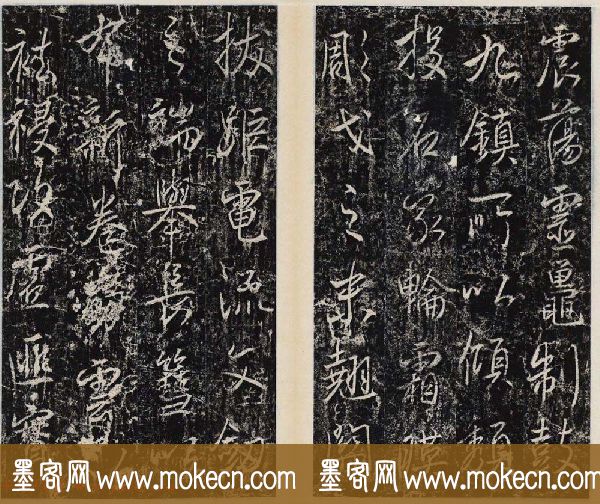 震蕩靈制鼓
九鎮所以傾頹
投石輪霜
彫戈之末翹關
拔距電流文劍
之端舉長
布新卷雲
祛祲虛匪
墨客网 www.mokecn.com
墨客网 www.mokecn.com